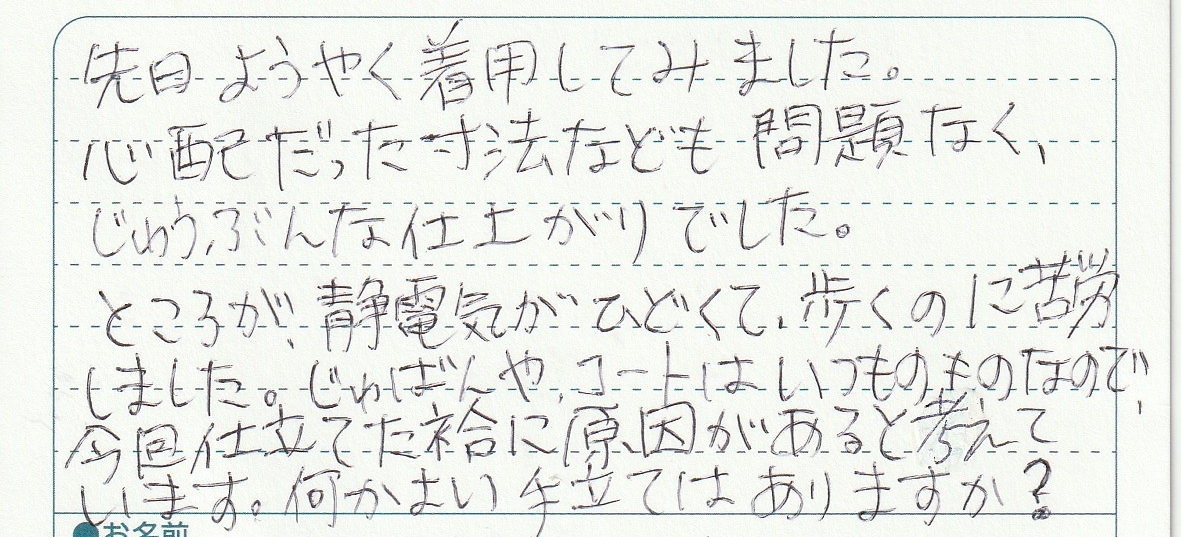 先日ようやく着用してみました。
心配だった寸法なども問題なく、
じゅうぶんな仕上がりでした。
ところが、静電気がひどくて、歩くのに苦労
しました。じゅばんや、コートはいつものものなので、
今回仕立てた袷に原因があると考えて
います。何かよい手立てはありますか?
●お名前